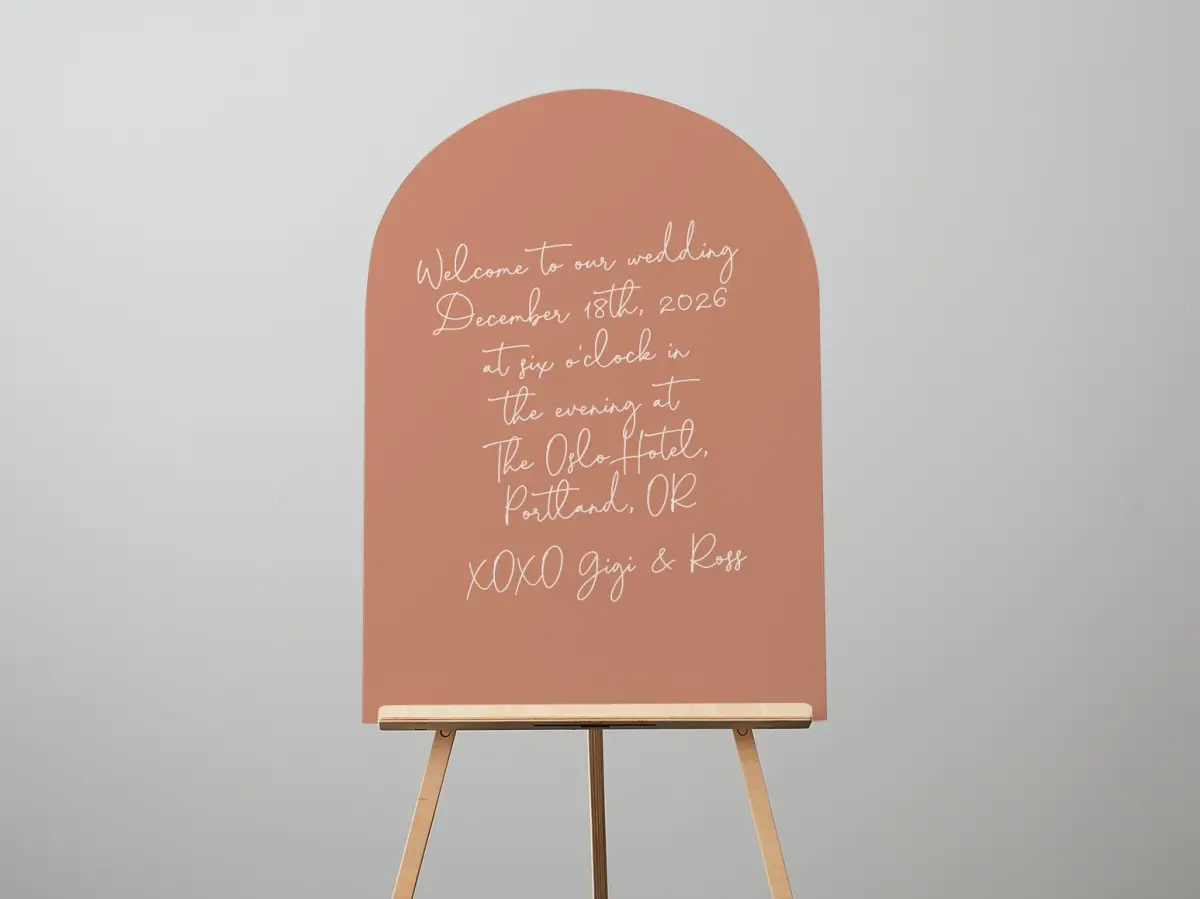 Welcome to our wedding
December 18th, 2026
at six o'clock in
the evening at
The Oslo Hotel,
Portland, OR
XOXO Gigi & Ross